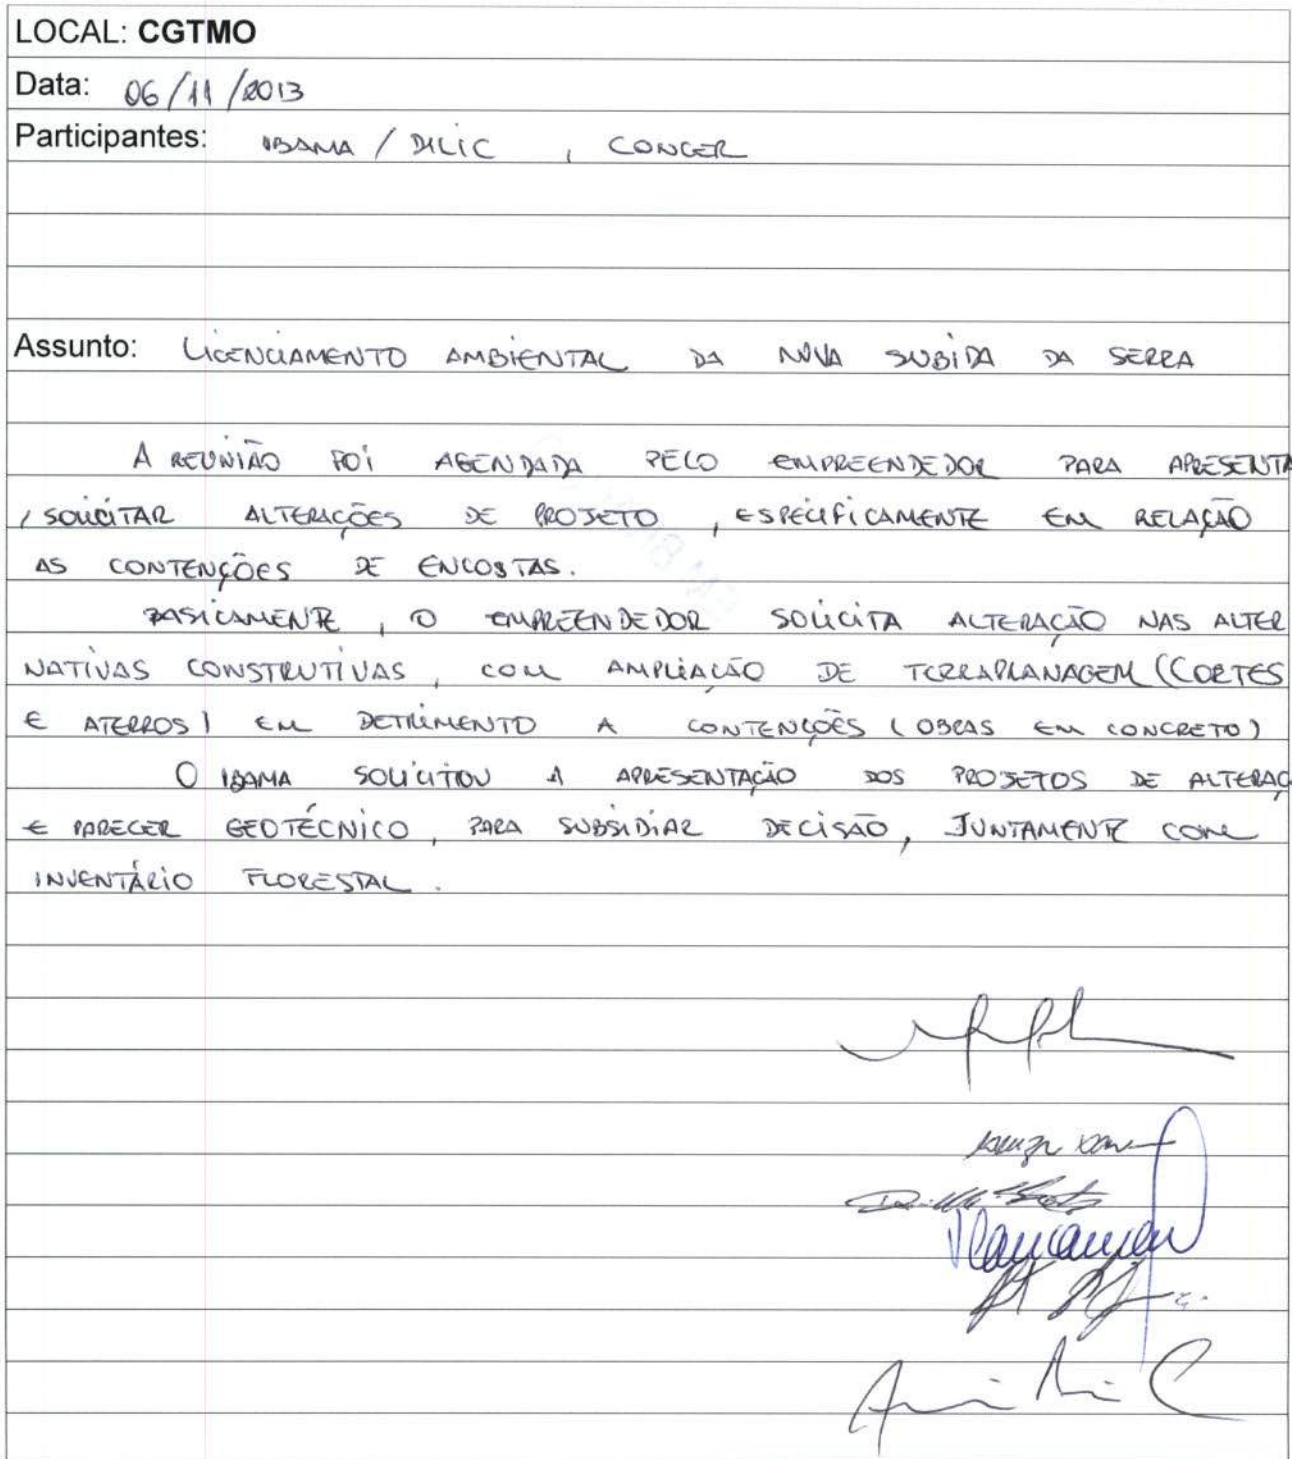 LOCAL: CGTMO
Data: 06/11/2013
Participantes: IBAMA / DILIC , CONCER
Assunto: LICENCIAMENTO AMBIENTAL DA NOVA SUBIDA DA SERRA
A REUNIÃO FOI AGENDADA PELO EMPREENDEDOR PARA APRESENTA
/ SOLICITAR ALTERAÇÕES DE PROJETO , ESPECIFICAMENTE EM RELAÇÃO
AS CONTENÇÕES DE ENCOSTAS.
BASICAMENTE , O EMPREENDEDOR SOLICITA ALTERAÇÃO NAS ALTER
NATIVAS CONSTRUTIVAS , COM AMPLIAÇÃO DE TERRAPLANAGEM (CORTES
E ATERROS) EM DETRIMENTO A CONTENÇÕES (OBRAS EM CONCRETO)
O IBAMA SOLICITOU A APRESENTAÇÃO DOS PROJETOS DE ALTERAÇ
E PARECER GEOTÉCNICO , PARA SUBSIDIAR DECISÃO , JUNTAMENTE COM
INVENTÁRIO FLORESTAL .